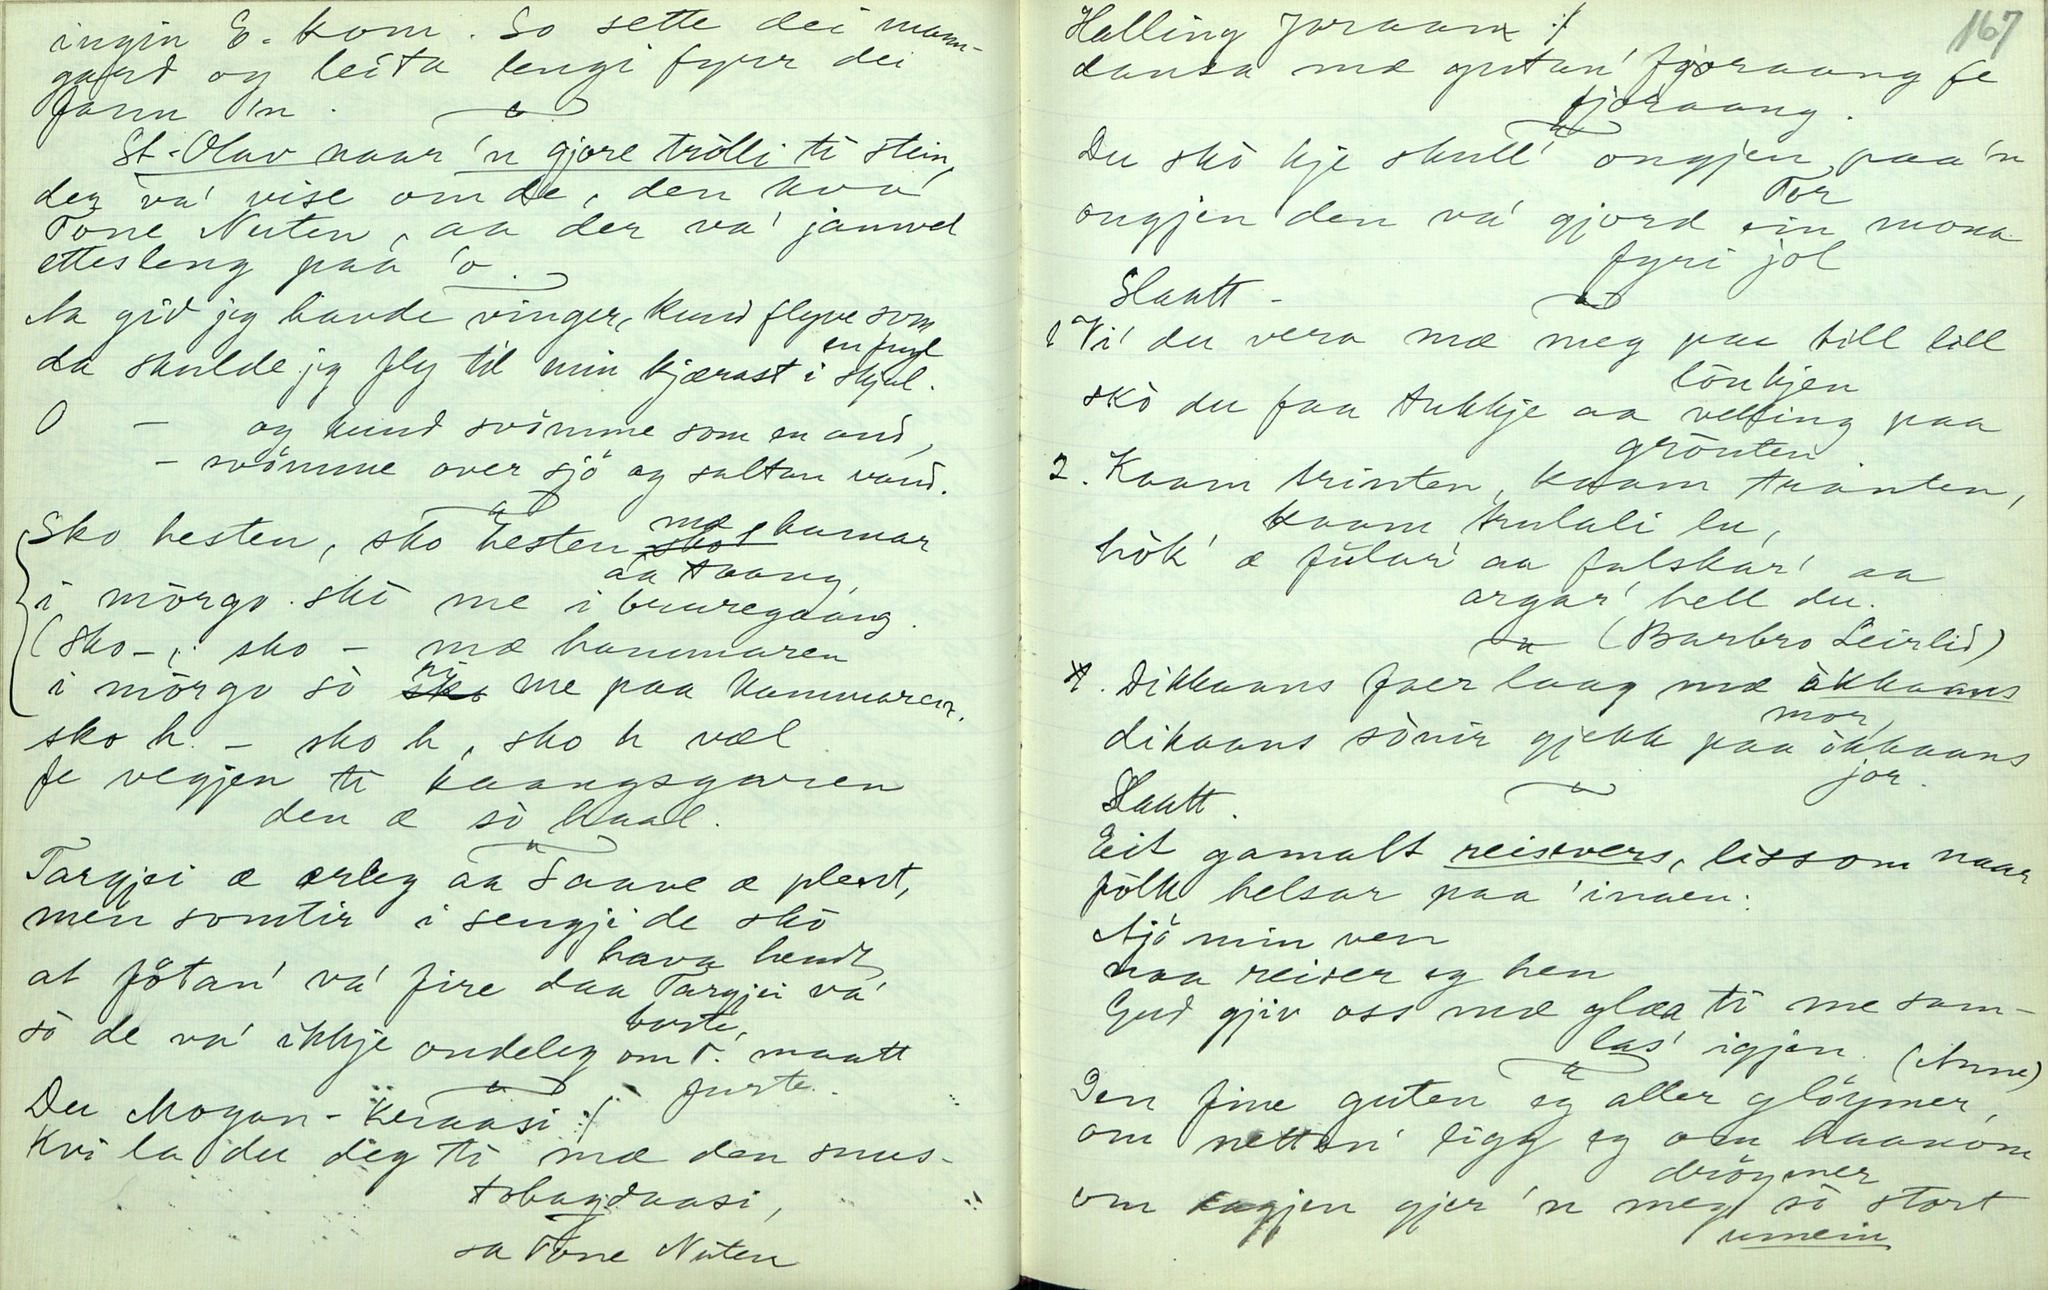 ingin E. kom. So sette dei mann-
gard og leita lengi fyrr dei
fann 'n.
St. Olav naar 'n gjore trölli ti stein,
der va' vise om de, den kva'
Tone Nuten, aa der va' jamvel
ettesleng paa 'o.
Aa gid jeg havde vinger, kund flyve som
en fugl
da skulde jeg fly til min kjærast i skjul.
O — og kund svömme som en and,
— svömme over sjö og saltan vand.
Sko hesten, sko hesten mæ hamar
aa taang,
i mörgo skò me i bruregaang.
(sko —, sko — mæ hammaren
i mörgo sò ri me paa kammaren.
sko h. — sko h, sko h væl
fe vegjen ti kaangsgaren
den æ sò haal.
Targjei æ ærleg aa Saave æ plent,
men somtir i sengji de skò
hava hendt
at fötan' va' fire daa Targjei va'
borte,
sò de va' ikkje ondeleg om T. maatt
furte.
Du Mogan-Keraasi :/
Kvi la du deg ti mæ den snus-
tobagdaasi,
sa Tone Nuten
167
Halling Joraan :/
dansa mæ gutan' fjoraang fe
fjoraang.
Du skò kje skull' ongjen paa 'n
Tor
ongjen den va' gjord ein mona
fyri jol
Slaatt —
1 Vi' du vera mæ meg paa till lill
lönkjen
skò du faa tukkje aa velling paa
grönten
2. Kaam trinten, kaam tranten,
kaam trulali lu,
hök' æ fular' aa falskar' aa
argar' hell du.
(Barbro Leirlid)
Dikkaans faer laag mæ òkkaans
mor,
dikaans sönir gjekk paa òkkaans
jor.
Slaatt.
Eit gamalt reisevers, lissom naar
folk helsar paa 'inaen:
Ajö min ven
naa reiser eg hen
Gud gjiv oss mæ glæa ti me sam-
las' igjen. (Anne)
Den fine guten eg aller glöymer,
om nettan' ligg eg om haanom
dröymer
om dagjen gjer 'n meg sò stort
umein